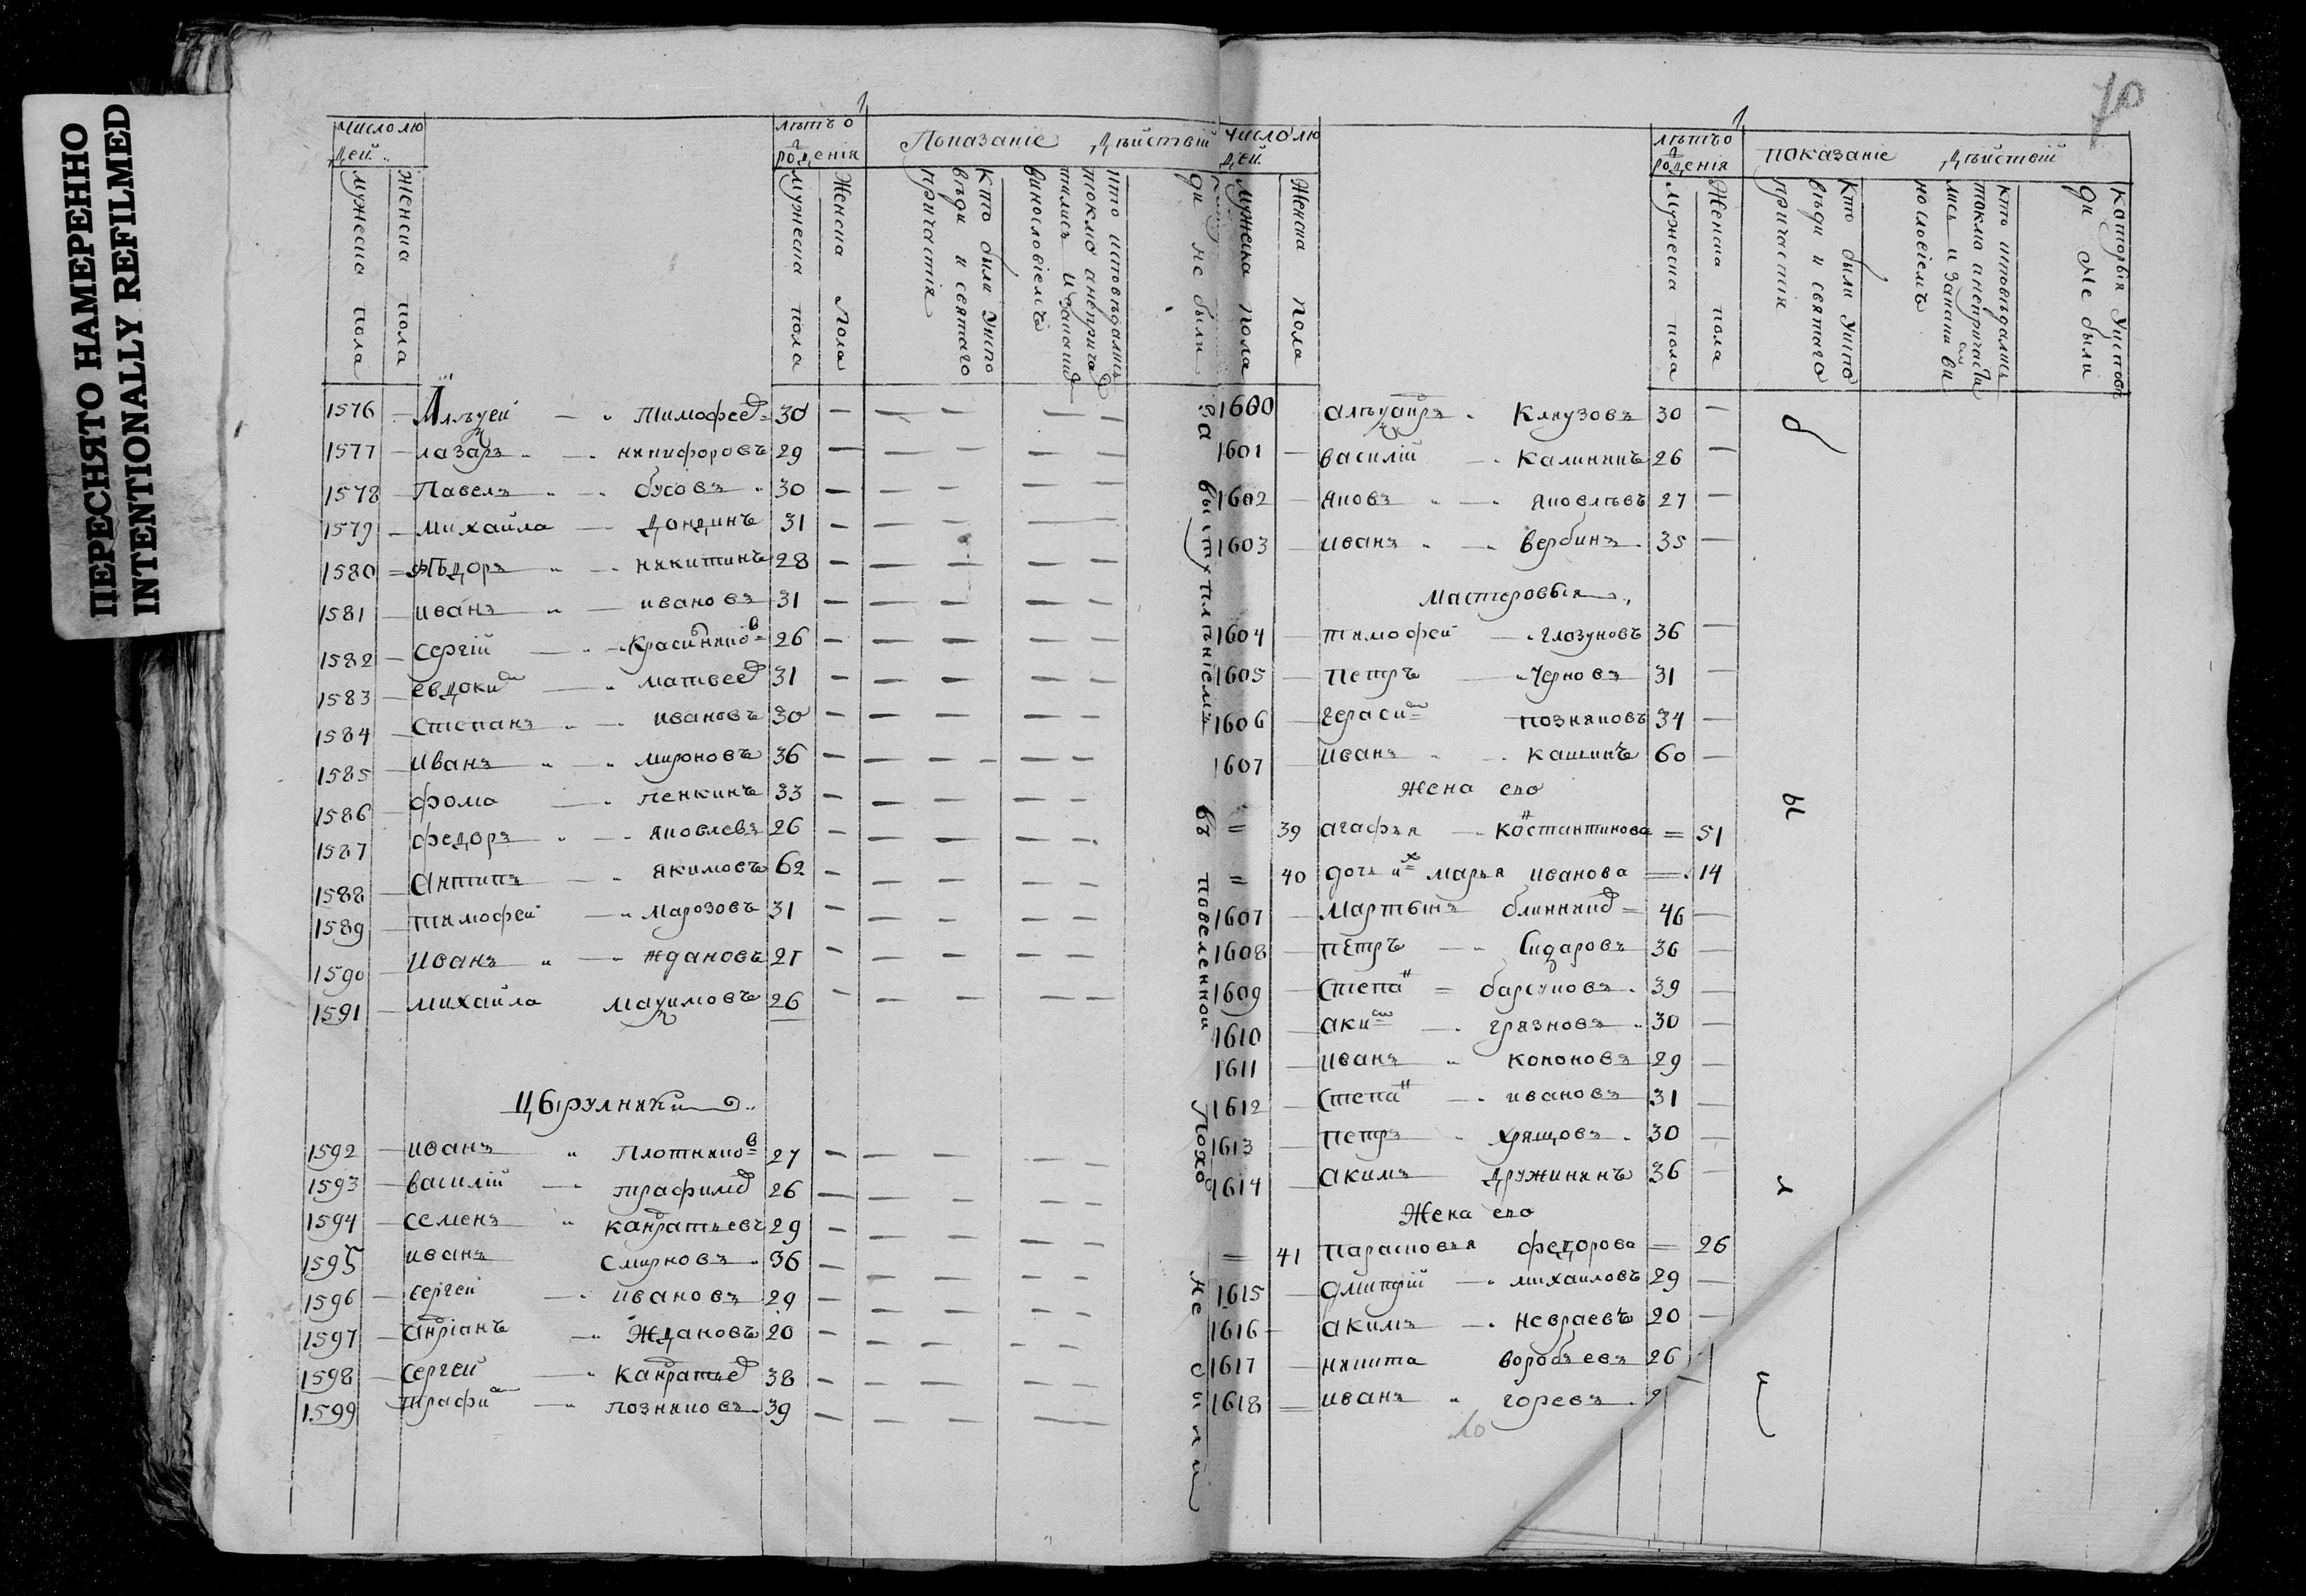 ПЕРЕСНЯТО НАМЕРЕННО
INTENTIONALLY REFILMED
70
число лю
дей
мужеска пола
женска пола
лѣтъ о
рожденія
мужеска пола
женска пола
Показаніе дѣйствій
кто были у испо
вѣди и святаго
причастія
кто исповѣдались
токмо а неприча
тились и за каки
винословіемъ
ди не были
1576 — Алѣѯей — Тимофеев 30
1577 — лазарь — никифоровъ 29
1578 — Павелъ — бусовъ 30
1579 — михайла — дондинъ 31
1580 — Ѳѣдоръ — никитинъ 28
1581 — иванъ — ивановъ 31
1582 — сергій — Красинниковъ 26
1583 — евдоким — матвеев 31
1584 — Степанъ — ивановъ 30
1585 — иванъ — мироновъ 36
1586 — фома — пенкинъ 33
1587 федоръ — яковлевъ 26
1588 — Антипъ — якимовъ 62
1589 — тимофей — марозовъ 31
1590 — Иванъ — ждановъ 27
1591 — михайла маѯимовъ 26
Цырулники
1592 — иванъ Плотников 27
1593 — василій — трафимов 26
1594 — семенъ кандратьевъ 29
1595 иванъ Смирновъ 36
1596 — сергей — ивановъ 29
1597 — Андріанъ — Ждановъ 20
1598 — Сергей — Кандратьев 38
1599 — Трафим — позняковъ 39
за выступлѣніемъ въ повеленной походъ не были
число лю
дей
мужеска пола
женска пола
лѣтъ о
рожденія
мужеска пола
женска пола
показаніе дѣйствій
кто были у испо
вѣди и святаго
причастія
кто исповѣдались
токмо а непричасти
лись и за каким ви
нословіемъ
каторыя у испове
ди не были
1600 алѣѯандръ Клаузовъ 30 —
1601 — василій — Калининъ 26 —
1602 — яковъ — яковлѣвъ 27 —
1603 — иванъ — вербинъ 35 —
Мастеровыя
1604 — тимофей — глазуновъ 36 —
1605 — петръ — Черновъ 31 —
1606 — герасим позняковъ 34 —
1607 — иванъ — кашинъ 60 —
жена ево
= 39 агафья — костантинова = 51
= 40 дочь их марья иванова — 14
1607 — мартынъ блинников = 46 —
1608 — пётръ — Сидаровъ 36 —
1609 — Степан = барсуковъ 39 —
1610 — аким — грязновъ 30 —
1611 иванъ кононовъ 29 —
1612 — Степан — ивановъ 31 —
1613 — петръ хрящовъ 30 —
1614 — акимъ дружининъ 36 —
Жена ево
= 41 парасковья федорова = 26
1615 — дмитрій — михаиловъ 29 —
1616 — акимъ — невраевъ 20 —
1617 — никита воробьевъ 26
1618 = иванъ горевъ
были
10